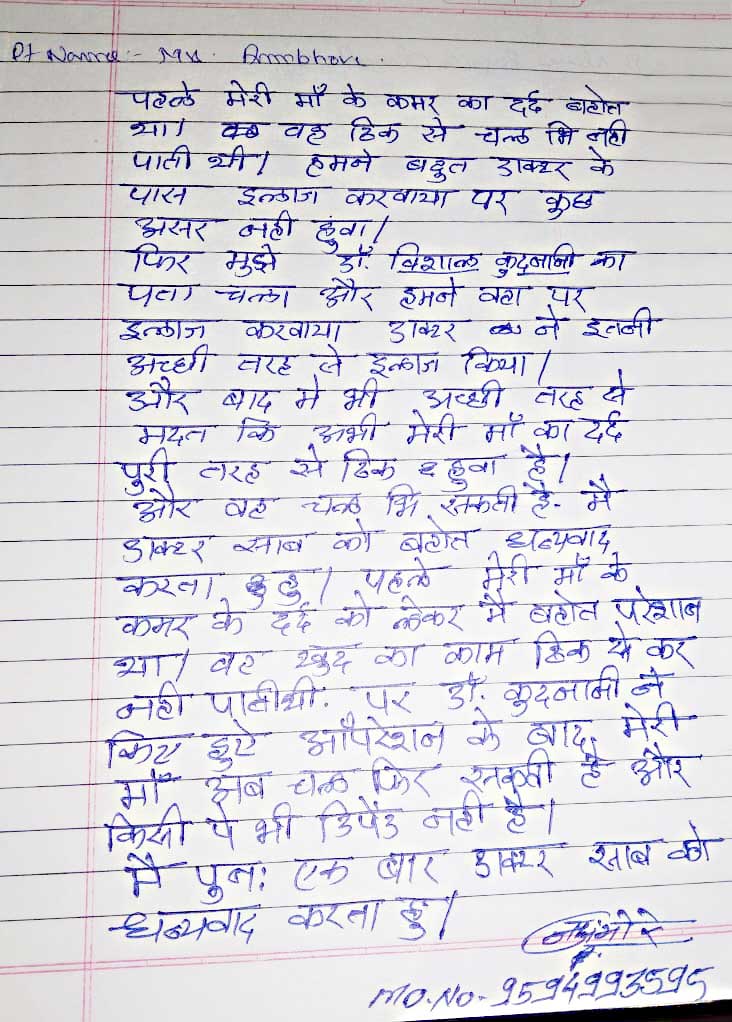 Pt Name :- Mrs. Ambhore.
पहले मेरी माँ के कमर का दर्द बहोत
था। वह ठिक से चल भि नही
पाती थी। हमने बहुत डाक्टर के
पास इलाज करवाया पर कुछ
असर नही हुवा।
फिर मुझे डॉ. विशाल कुदनानी का
पता चला और हमने वहा पर
इलाज करवाया डाक्टर ने इतनी
अच्छी तरह से इलाज किया।
और बाद मे भी अच्छी तरह से
मदत कि अभी मेरी माँ का दर्द
पुरी तरह से ठिक हुवा है।
और वह चल भि सकती है. मै
डाक्टर साब को बहोत धन्यवाद
करता हु। पहले मेरी माँ के
कमर के दर्द को लेकर मै बहोत परेशान
था। वह खुद का काम ठिक से कर
नही पातीथी. पर डॉ. कुदनानी ने
किए हुऐ ऑपरेशन के बाद, मेरी
माँ अब चल फिर सकती है और
किसी पे भी डिपेंड नही है।
मै पुनः एक बार डाक्टर साब को
धन्यवाद करता हु।
MO.NO- 9594993595